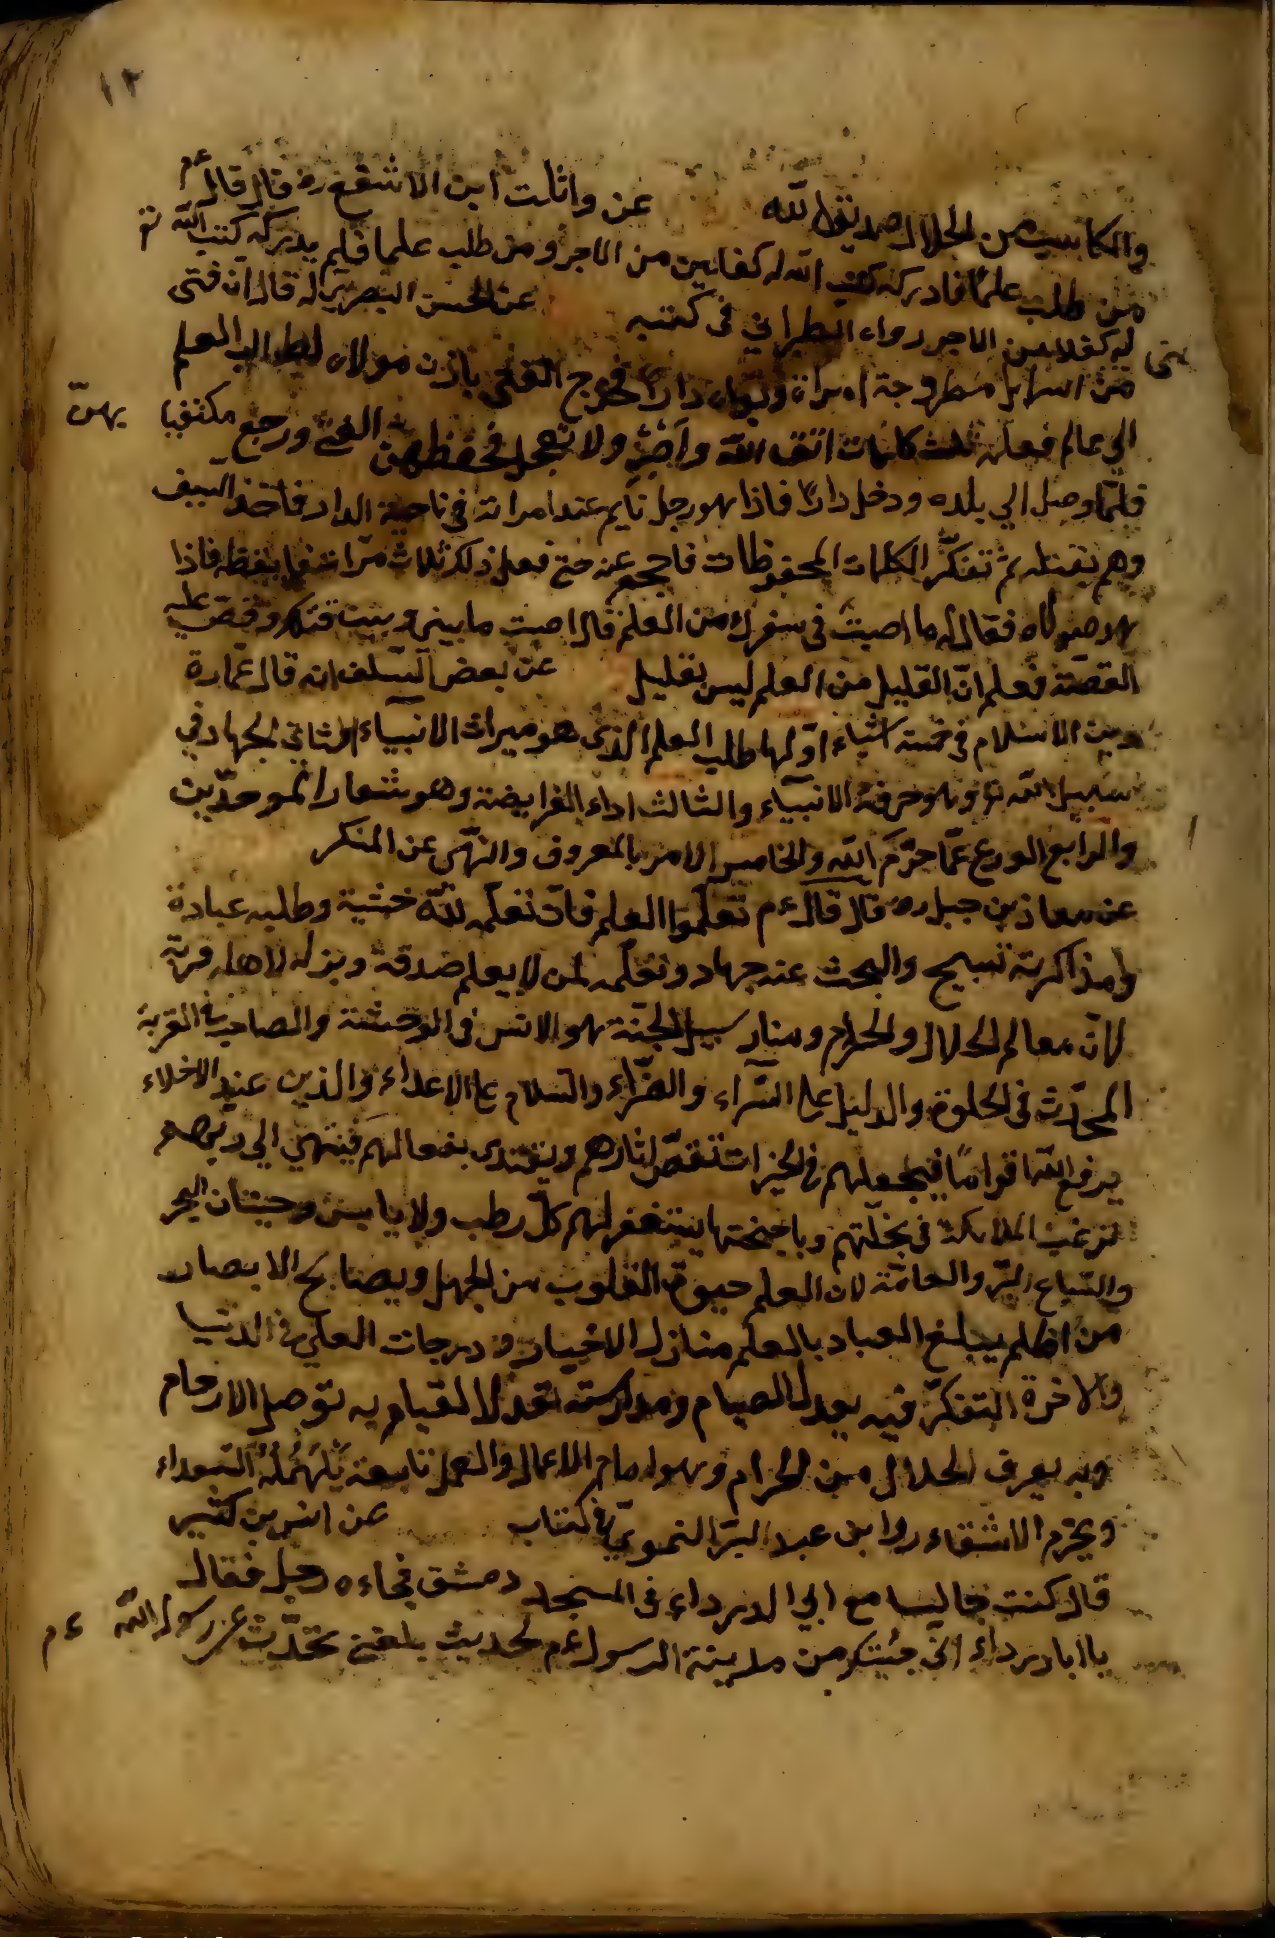 ١٢
والكاسب من الحلال صديق الله عن واثلت ابن الاشقع رض قال قال عم
من طلب علما فادركه كتب الله له كفلين من الاجر ومن طلب علما فلم يدركه كتب الله تع
له كفلا من الاجر رواه الطبراني في كتبه عن الحسن البصري انه قال ان فتى
من اسرايل امراة دارا فخرج الفتى باذن مولاه لطالب العلم
بنى
الى عالم فعلمه ثلث كلمات اتق الله واصبر ولا تعجل فحفظهن الفتى ورجع مكتفيا بهن
فلما وصل الي بلده ودخل دارا فاذا هو رجل نايم عند امراته في ناحية الدار فاخذ السيف
وهم بقتله ثم تفكر الكلمات المحفوظات عنه حتى فعل ذلك ثلاث مرات فاذا
هو مولاه فقال له ما اصبت في سفرك من العلم قال اصبت ما بيني وبيت قتلك وقص عليه
القصة فعلم ان القليل من العلم ليس بقليل عن بعض السلف انه قال عمارة
دين الاسلام في خمسة اشياء اولها طلب العلم الذي هو ميراث الانبياء والثاني الجهاد في
سبيل الله تع وهو حرفة الانبياء والثالث اداء الفرايضة وهو شعار الموحدين
والرابع الورع عما حرم الله والخامس الامر بالمعروف والنهى عن المنكر
عن معاذ بن جبل رض قال قال عم تعلموا العلم فان تعلمه لله خشية وطلبه عبادة
ومذاكرته تسبيح والبحث عنه جهاد وتعلمه لمن لا يعلم صدقة وبذله لاهله قربة
لان معالم الحلال والحرام ومنار سبيل الجنة هو الانس في الوحشة والصاحب في الغربة
المحدث في الخلوة والدليل على السراء والضراء والسلام على الاعداء والذين عند الاخلاء
يرفع الله اقواما فيجعلهم في الخيرات تقص اثارهم ويقتدى بفعالهم فينتهي الي ربهم
ترغب الملائكة في وباجنحتها يستغفر لهم كل رطب ولا يابس وحيتان البحر
والسباع البر والعامة لان العلم حيوة القلوب من الجهل ويصابح الابصار
من الظلم يبلغ العباد بالعلم منازل الاخيار ودرجات العلى في الدنيا
والاخرة التفكر فيه يعدل الصيام ومدارسته تعدل القيام به توصل الارحام
وبه يعرف الحلال من الحرام وهو امام الاعمال والعمل تابعة يلهمه السعداء
ويحرم الاشقاء روا ابن عبد البر النموي في كتاب عن انس بن كثير
قال كنت جالسا مع ابي الدرداء في المسجد دمشق فجاءه رجل فقال
يا ابا درداء اني جئتك من مدينة الرسول عم لحديث بلغني تحدث عن رسول الله عم